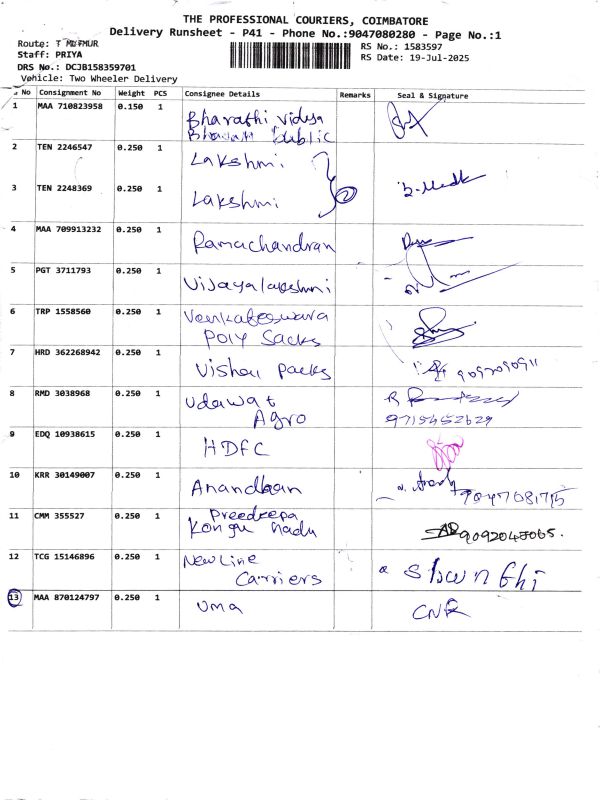 THE PROFESSIONAL COURIERS, COIMBATORE
Delivery Runsheet - P41 - Phone No.:9047080280 - Page No.:1
Route:
Staff: PRIYA
DRS No.: DCJB158359701
Vehicle: Two Wheeler Delivery
RS No.: 1583597
RS Date: 19-Jul-2025
No Consignment No Weight PCS Consignee Details Remarks Seal & Signature
1 MAA 710823958 0.150 1 Bharathi vidya
Bhavan Public
2 TEN 2246547 0.250 1 Lakshmi
3 TEN 2248369 0.250 1 Lakshmi 2
4 MAA 709913232 0.250 1 Ramachandran
5 PGT 3711793 0.250 1 Vijayalakshmi
6 TRP 1558560 0.250 1 Venkateswara
Poly Sacks
7 HRD 362268942 0.250 1 Vishal Packs
8 RMD 3038968 0.250 1 Udawat
Agro
9 EDQ 10938615 0.250 1 HDFC
10 KRR 30149007 0.250 1 Anandban
11 CMM 355527 0.250 1 Preedeepa
Kongu nadu
12 TCG 15146896 0.250 1 New Line
Carriers
13 MAA 870124797 0.250 1 Uma CNR